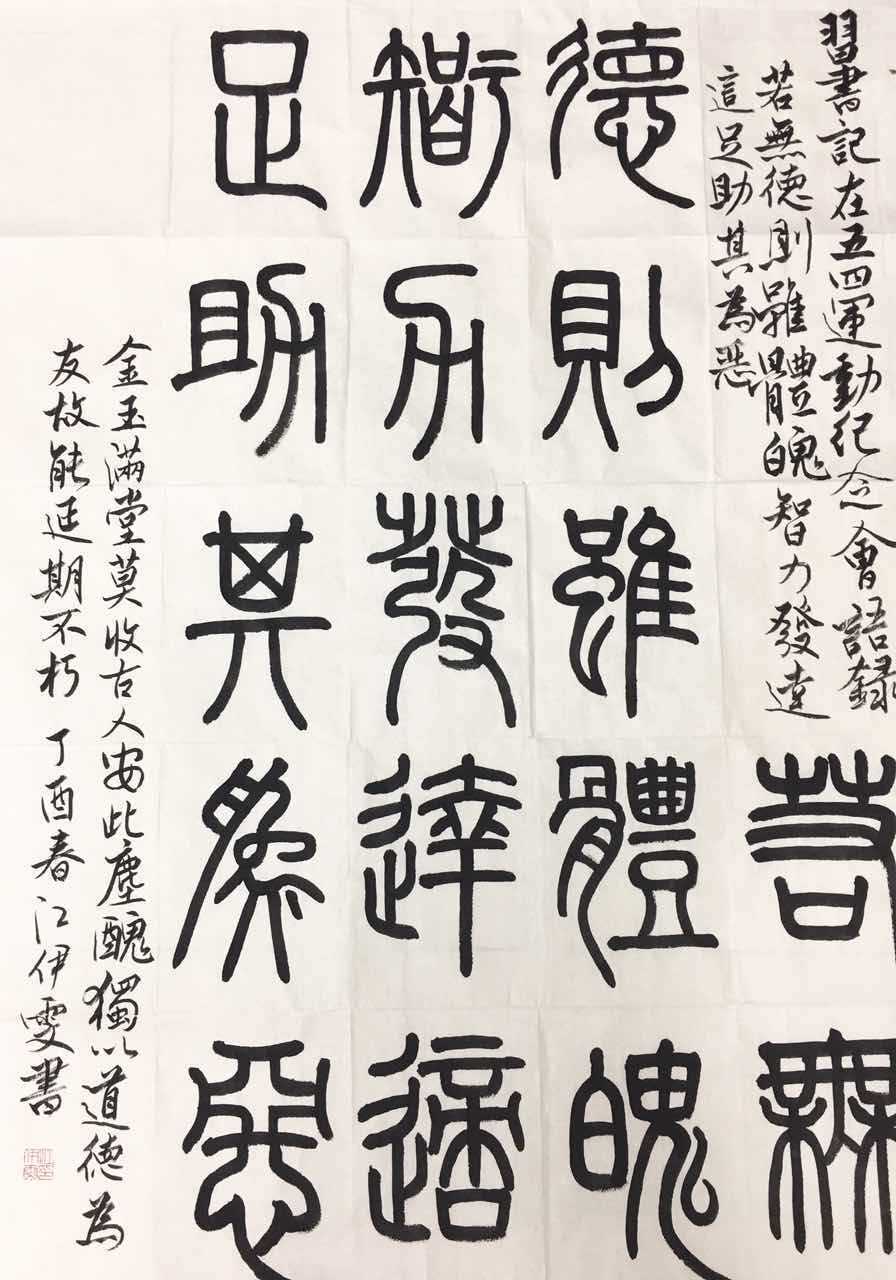 習書記在五四運動紀念會語録
若無德則雖體魄智力發達
這足助其為惡
若無
德則雖體魄
智力發達適
足助其為惡
金玉滿堂莫收古人安此塵醜獨以道德為
友故能延期不朽 丁酉春江伊雯書